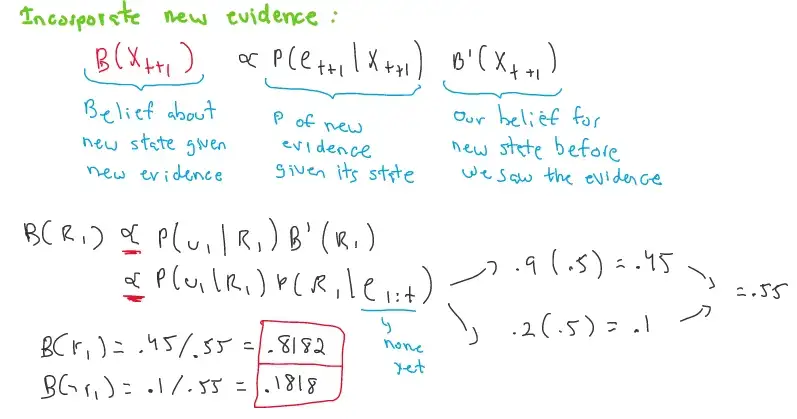 Incorporate new evidence :
B(X_{t+1}) ∝ P(e_{t+1} | X_{t+1}) B'(X_{t+1})
Belief about new state given new evidence
P of new evidence given its state
Our belief for new state before we saw the evidence
B(R_1) ∝ P(u_1 | R_1) B'(R_1)
∝ P(u_1 | R_1) P(R_1 | e_{1:t})
none yet
.9 (.5) = .45
.2 (.5) = .1
= .55
B(r_1) = .45/.55 = .8182
B(¬r_1) = .1/.55 = .1818